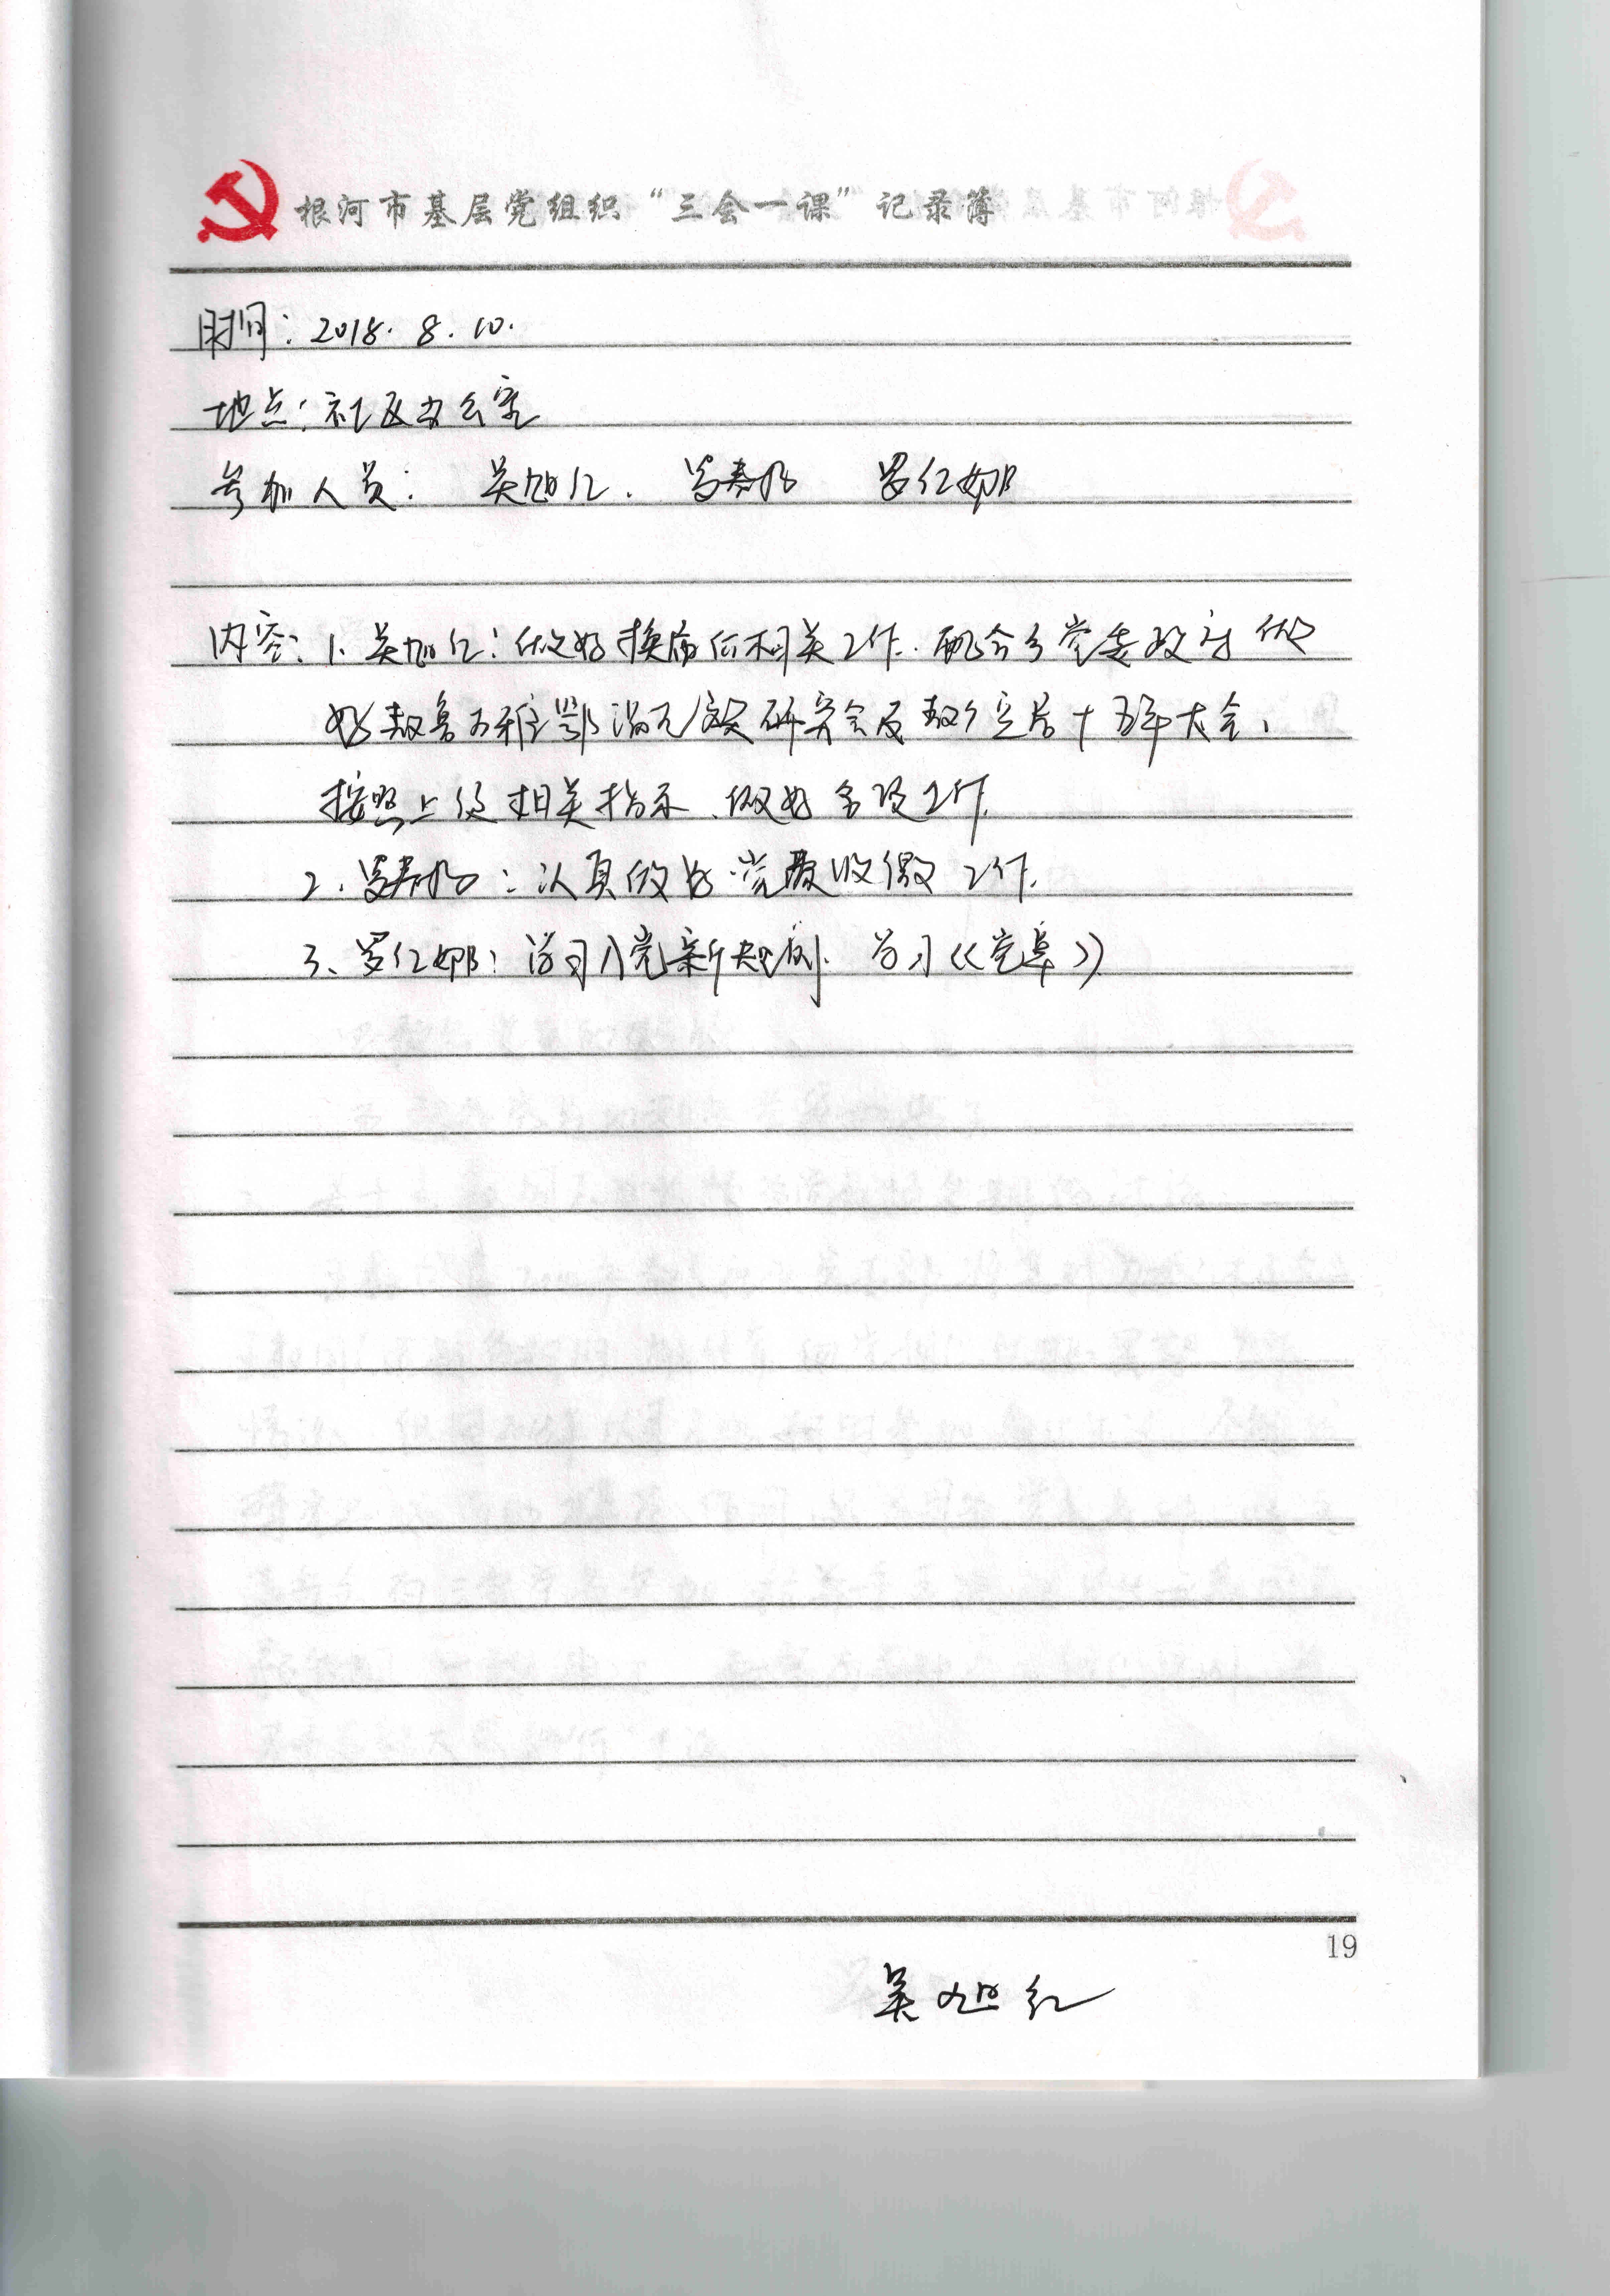 根河市基层党组织“三会一课”记录簿
时间：2018.8.10.
地点：社区办公室
参加人员：吴旭红. 罗红
内容：1、吴旭红：做好换届后相关工作.配合乡党委政府做
好敖鲁古雅鄂温克族研究会及敖乡定居十五年大会，
按照上级相关指示、做好各项工作.
2、：认真做好党费收缴工作.
3、罗红：学习入党新规则.学习《党章》
19
吴旭红